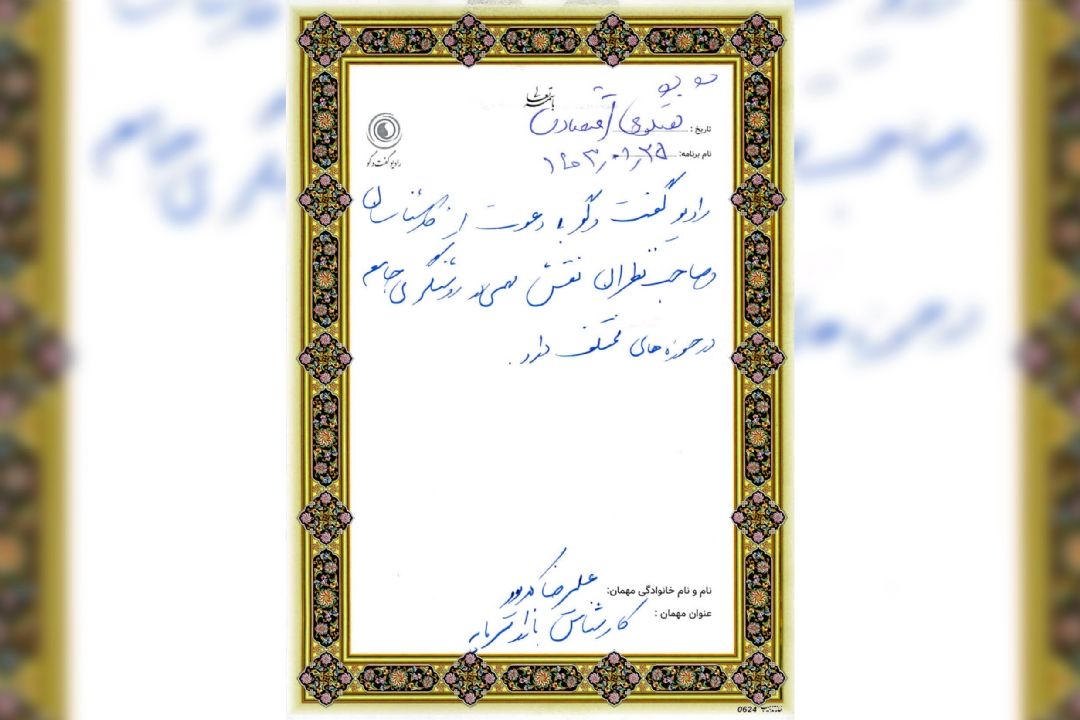 باسمه تعالی
رادیو گفت و گو
تاریخ: گفتگوی اقتصادی
نام برنامه: ۱۴۰۳,۰۹,۲۵
رادیو گفت و گو با دعوت از کارشناسان
و صاحب نظران نقش مهمی در روشنگری جامعه
در حوزه های مختلف دارد.
نام و نام خانوادگی مهمان: علیرضا
عنوان مهمان : کارشناس بازار سرمایه
0624